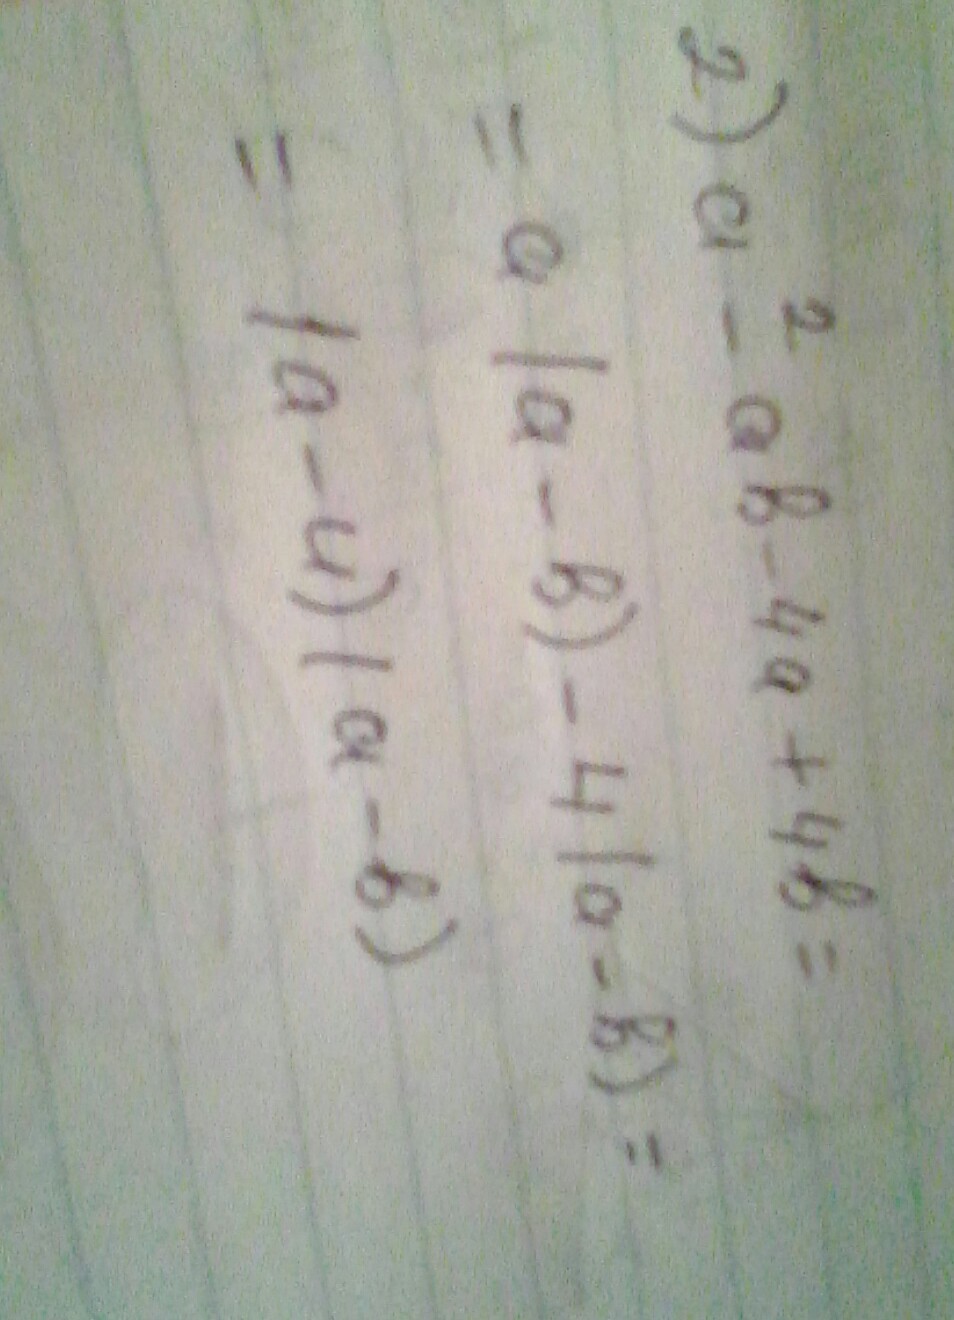 2) a² - ab - 4a + 4b =
= a(a - b) - 4(a - b) =
= (a - 4)(a - b)